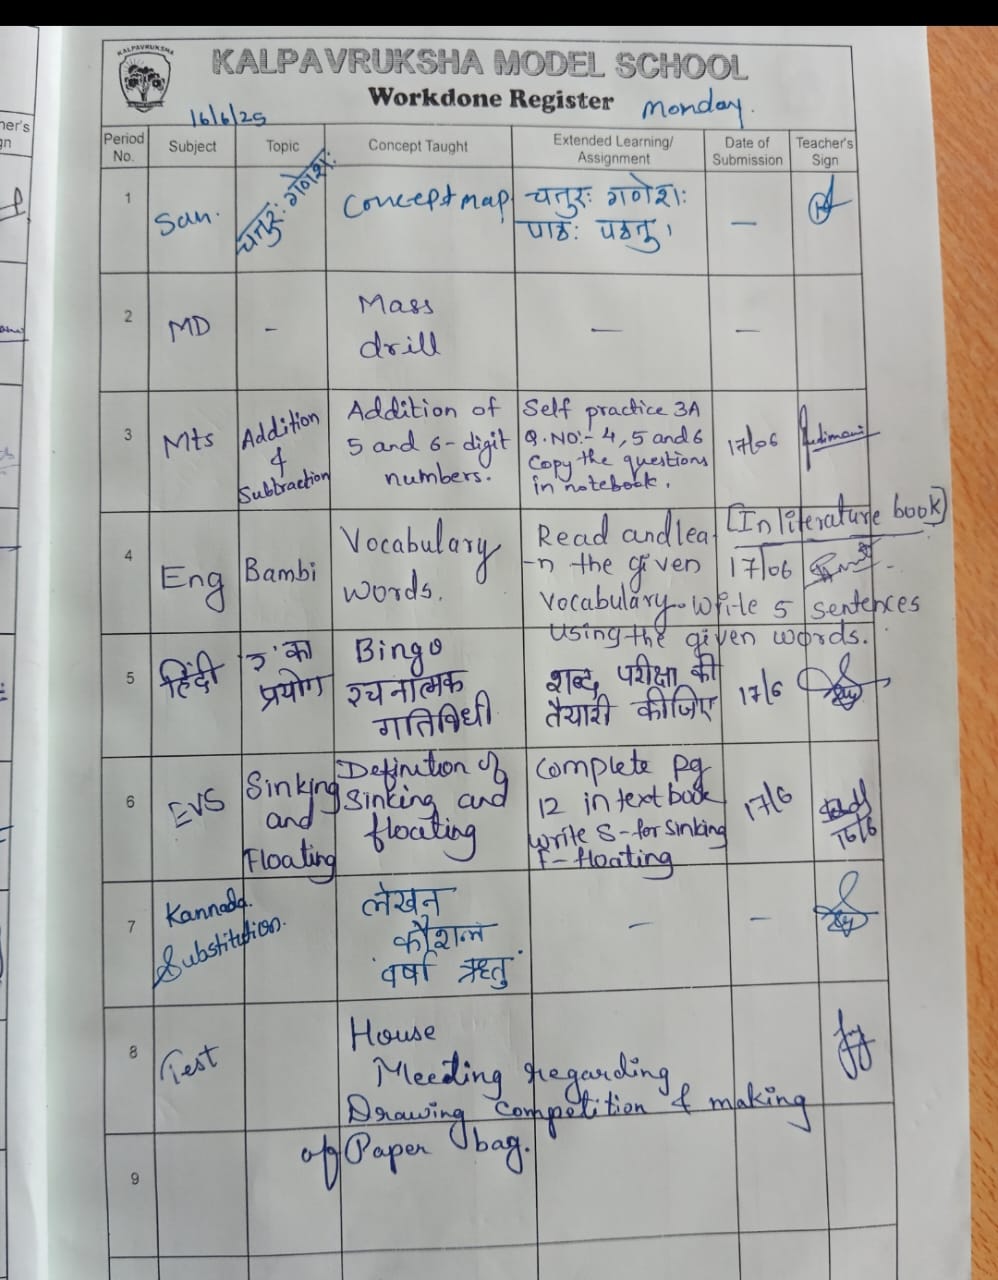 KALPAVRUKSHA
KALPAVRUKSHA MODEL SCHOOL
Workdone Register
16/6/25
Monday.
Period No.
Subject
Topic
Concept Taught
Extended Learning/ Assignment
Date of Submission
Teacher's Sign
1
San.
चतुरः गणेशः
Concept map
चतुरः गणेशः
पाठः पठतु।
—
2
MD
-
Mass
drill
—
—
3
Mts
Addition
&
Subtraction
Addition of
5 and 6-digit
numbers.
Self practice 3A
Q.NO:- 4, 5 and 6
Copy the questions
in notebook.
17/06
4
Eng
Bambi
Vocabulary
words.
[In literature book]
Read and lea-
-n the given
vocabulary. Write 5 sentences
using the given words.
17/06
5
हिंदी
का
प्रयोग
Bingo
रचनात्मक
गतिविधी
शब्द परीक्षा की
तैयारी कीजिए
17/6
6
EVS
Sinking
and
Floating
Definition of
Sinking and
floating
Complete pg
12 in text book
write S-for sinking
F- floating
17/6
16/6
7
Kannada.
Substitution.
लेखन
कौशल
वर्षा ऋतु
—
—
8
Test
House
Meeting regarding
Drawing Competition & making
of Paper bag.
9